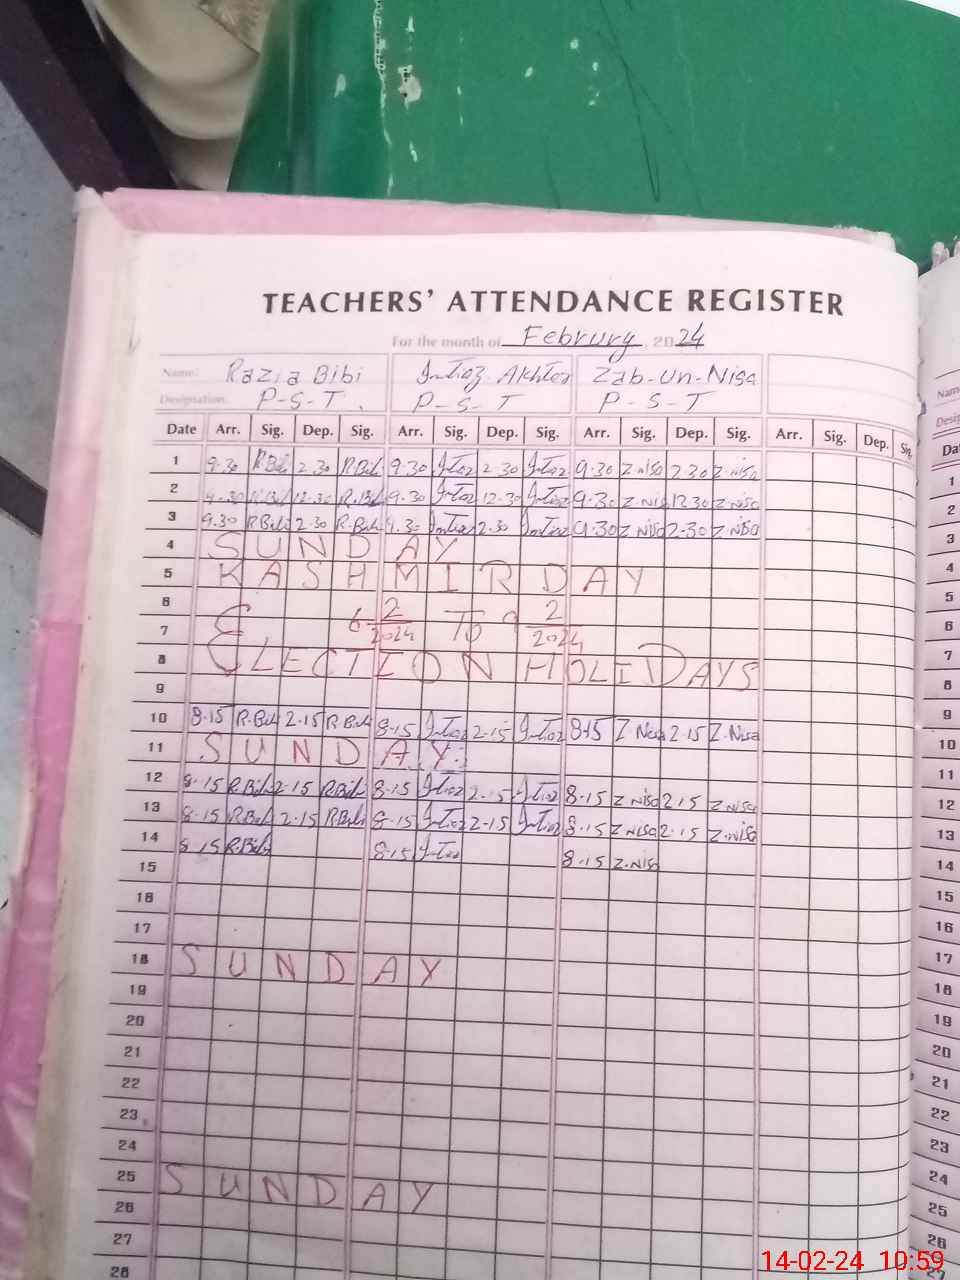 TEACHERS' ATTENDANCE REGISTER
For the month of Februry, 2024
Name: Razia Bibi Imtiaz Akhter Zab-Un-Nisa
Designation: P-S-T. P-S-T P-S-T
Date Arr. Sig. Dep. Sig. Arr. Sig. Dep. Sig. Arr. Sig. Dep. Sig. Arr. Sig. Dep. Sig.
1 9.30 R.Bibi 2.30 R.Bibi 9.30 Imtiaz 2.30 Imtiaz 9.30 Z.nisa 2.30 Z.nisa
2 9.30 R.Bibi 12.30 R.Bibi 9.30 Imtiaz 12.30 Imtiaz 9.30 Z.nisa 12.30 Z.nisa
3 9.30 R.Bibi 2.30 R.Bibi 9.30 Imtiaz 2.30 Imtiaz 9.30 Z.nisa 2.30 Z.nisa
4 SUNDAY
5 KASHMIR DAY
6 6 2/2024 To 9 2/2024
7
8 ELECTION HOLIDAYS
9
10 8.15 R.Bibi 2.15 R.Bibi 8.15 Imtiaz 2.15 Imtiaz 8.15 Z.Nisa 2.15 Z.Nisa
11 SUNDAY.
12 8.15 R.Bibi 2.15 R.Bibi 8.15 Imtiaz 2.15 Imtiaz 8.15 Z.nisa 2.15 Z.nisa
13 8.15 R.Bibi 2.15 R.Bibi 8.15 Imtiaz 2.15 Imtiaz 8.15 Z.nisa 2.15 Z.nisa
14 8.15 R.Bibi 8.15 Imtiaz 8.15 Z.nisa
15
16
17
18 SUNDAY
19
20
21
22
23
24
25 SUNDAY
26
27
28
Name
1
2
3
4
5
6
7
8
9
10
11
12
13
14
15
16
17
18
19
20
21
22
23
24
25
26
27
14-02-24 10:59